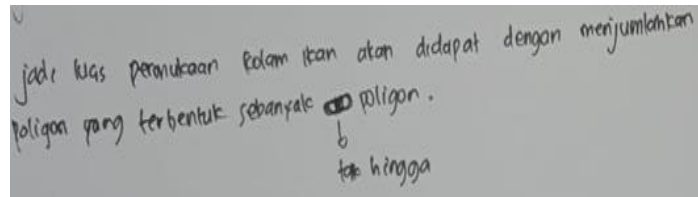 jadi luas permukaan kolam ikan akan didapat dengan menjumlahkan
poligon yang terbentuk sebanyak ∞ poligon.
tak hingga